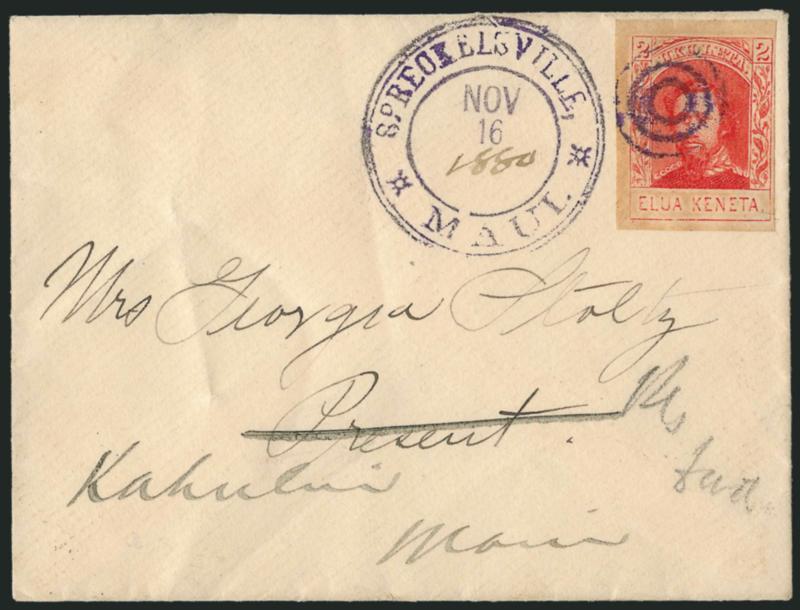 SPRECKELSVILLE,
NOV
16
1880
MAUI.
2 2
ELUA KENETA.
Mrs Georgia Stoltz
Present.
Kahului
Maui